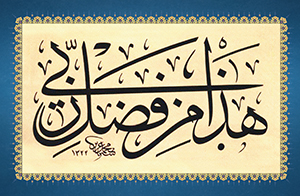 هَذَا مِنْ فَضْلِ رَبِّي
١٣٢٢